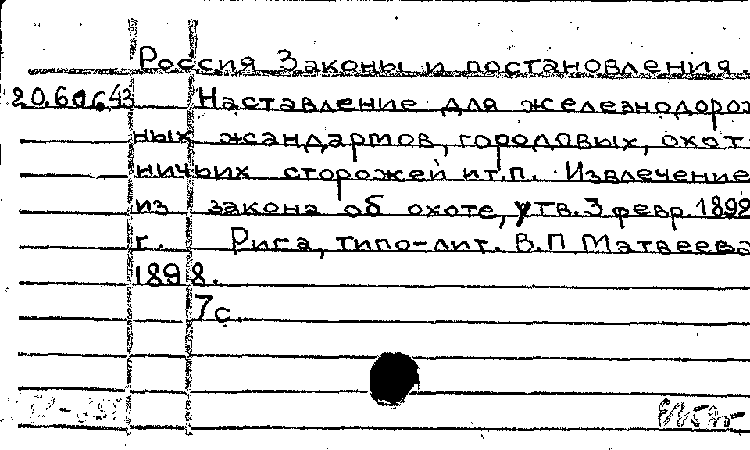 Россия Законы и постановления.
Наставление для железнодорож
ных жандармов, городовых, охот-
ничьих сторожей и т.п. Извлечение
из закона об охоте, утв. 3 февр. 1898
г. Рига, типо-лит. В.П Матвеева
1898.
7с.